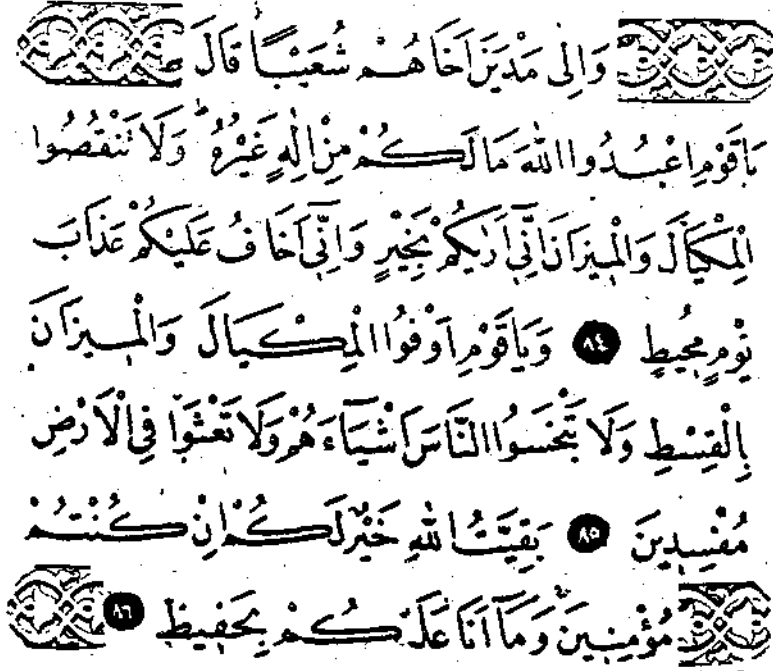 وَاِلٰى مَدْيَنَ اَخَاهُمْ شُعَيْبًاۜ قَالَ
يَاقَوْمِ اعْبُدُوا اللّٰهَ مَا لَكُمْ مِنْ اِلٰهٍ غَيْرُهُۜ وَلَا تَنْقُصُوا
الْمِكْيَالَ وَالْمِيزَانَ اِنّ۪ٓي اَرٰيكُمْ بِخَيْرٍ وَاِنّ۪ٓي اَخَافُ عَلَيْكُمْ عَذَابَ
يَوْمٍ مُحِيطٍ ٨٤ وَيَاقَوْمِ اَوْفُوا الْمِكْيَالَ وَالْمِيزَانَ
بِالْقِسْطِ وَلَا تَبْخَسُوا النَّاسَ اَشْيَٓاءَهُمْ وَلَا تَعْثَوْا فِي الْاَرْضِ
مُفْسِدِينَ ٨٥ بَقِيَّتُ اللّٰهِ خَيْرٌ لَكُمْ اِنْ كُنْتُمْ
مُؤْمِنِينَۚ وَمَٓا اَنَا عَلَيْكُمْ بِحَفِيظٍ ٨٦